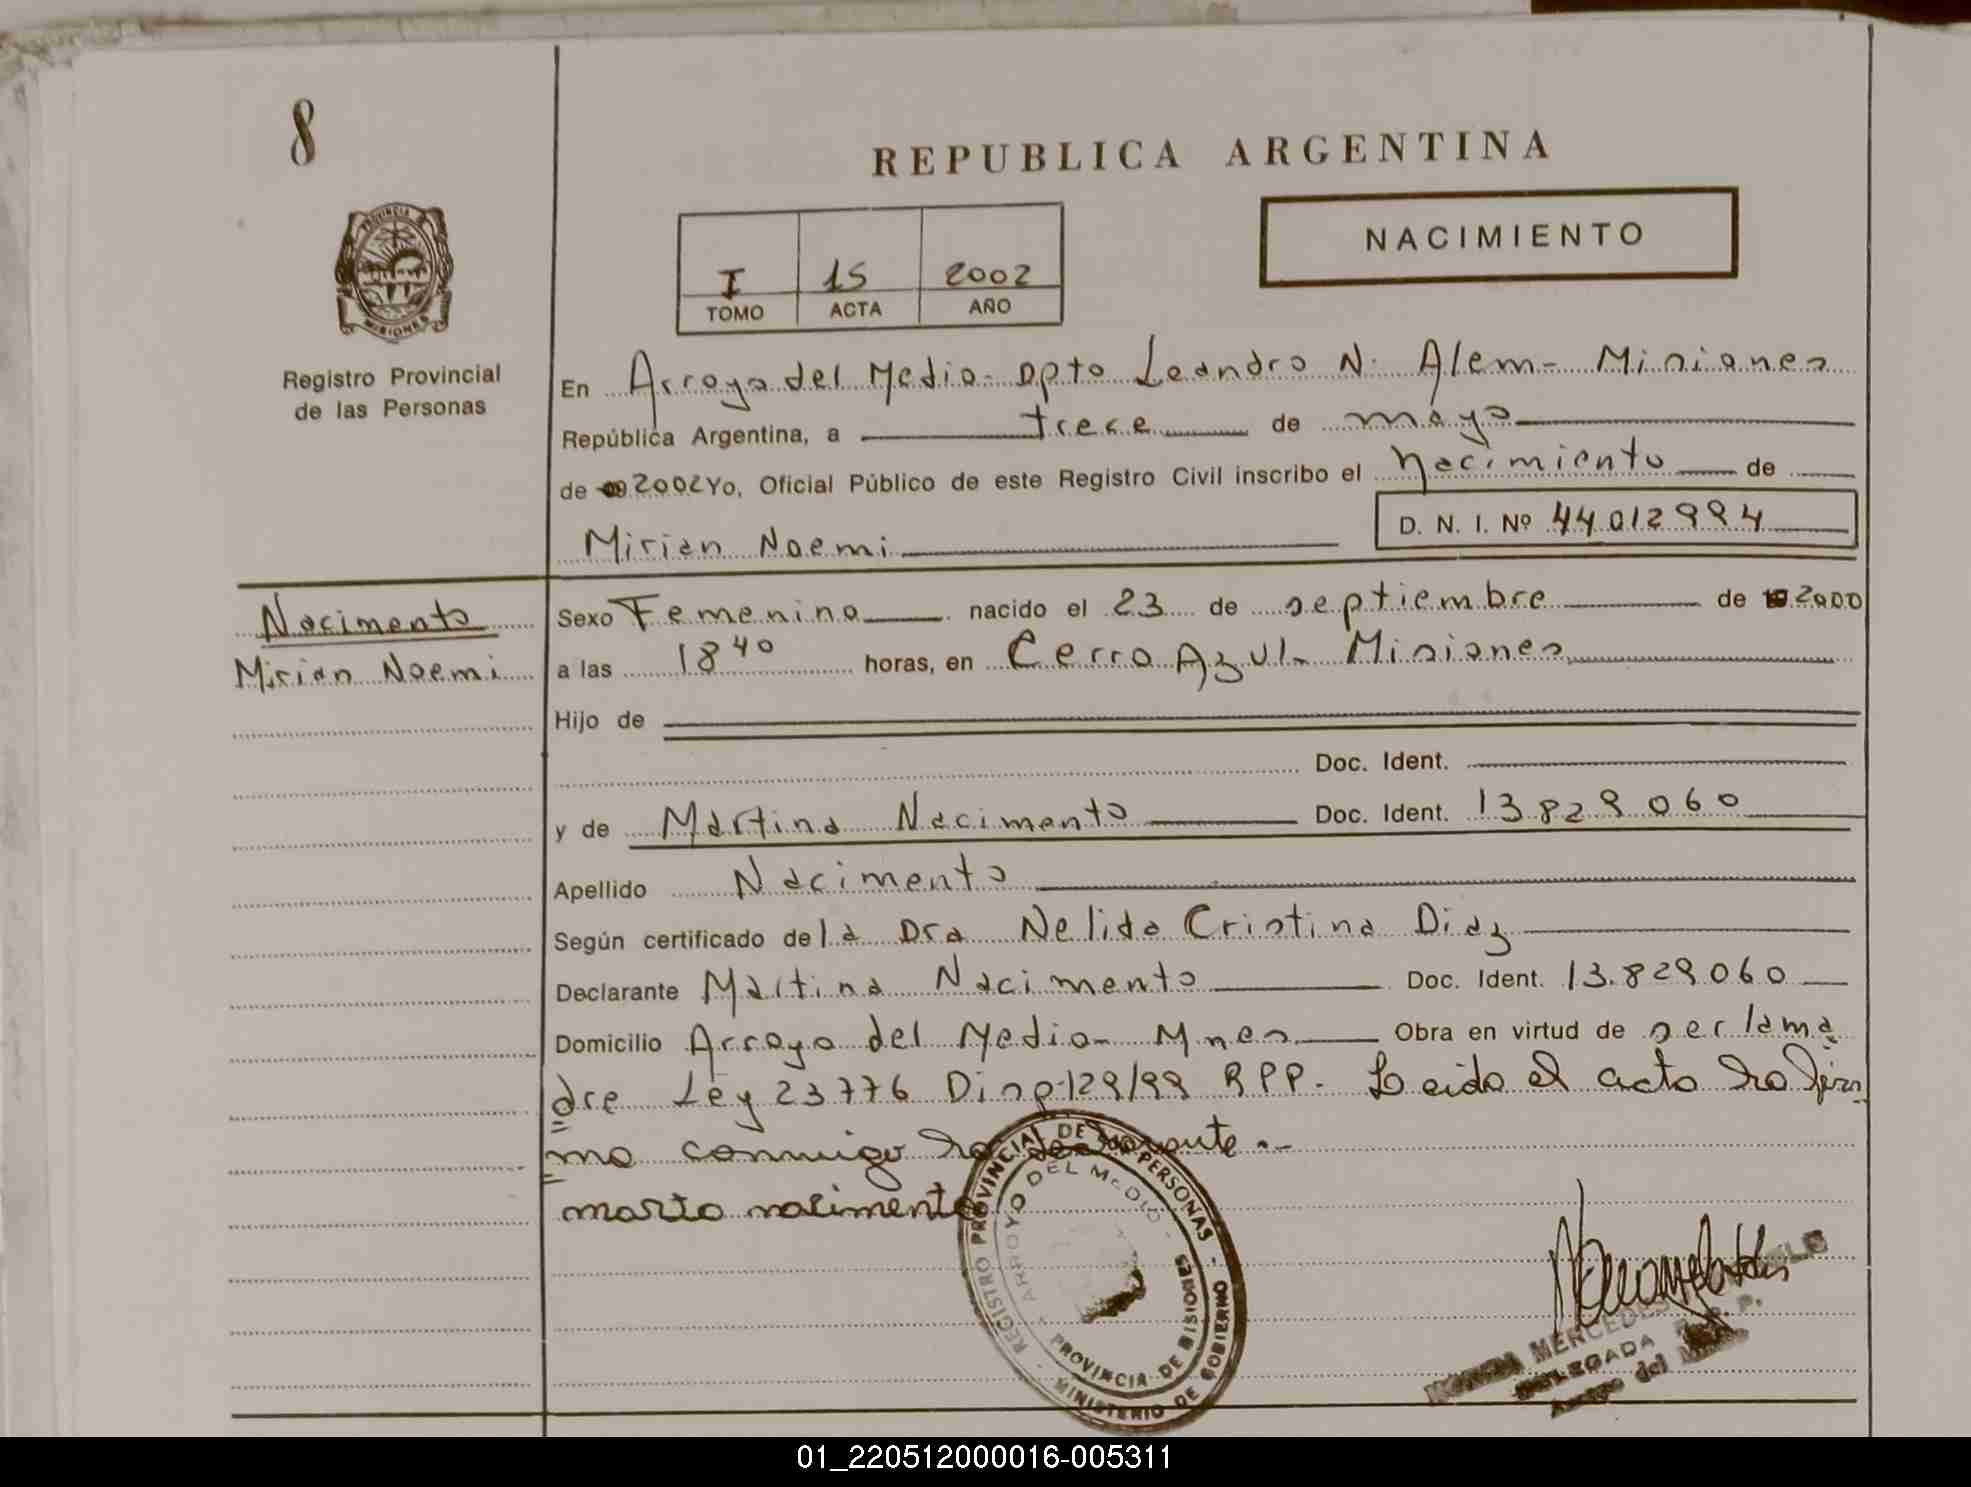 8
REPUBLICA ARGENTINA
PROVINCIA DE
MISIONES
Registro Provincial
de las Personas
NACIMIENTO
I 15 2002
TOMO ACTA AÑO
En Arroyo del Medio - Dpto Leandro N. Alem - Misiones
República Argentina, a trece de mayo
de 2002 Yo, Oficial Público de este Registro Civil inscribo el Nacimiento de
Mirian Noemi D. N. I. Nº 44012994
Nacimento
Mirian Noemi
Sexo Femenino nacido el 23 de septiembre de 2000
a las 18 40 horas, en Cerro Azul - Misiones
Hijo de
Doc. Ident.
y de Martina Nacimento Doc. Ident. 13829060
Apellido Nacimento
Según certificado de la Dra Nelida Cristina Diaz
Declarante Martina Nacimento Doc. Ident. 13.829.060
Domicilio Arroyo del Medio - Mnes Obra en virtud de ser la ma
dre Ley 23776 Disp. 129/99 RPP. Leido el acta la fir
ma conmigo la declarante.-
marta nacimento
REGISTRO PROVINCIAL DE LAS PERSONAS - MINISTERIO DE GOBIERNO
ARROYO DEL MEDIO - PROVINCIA DE MISIONES
MERCEDES
DELEGADA
del
01_220512000016-005311